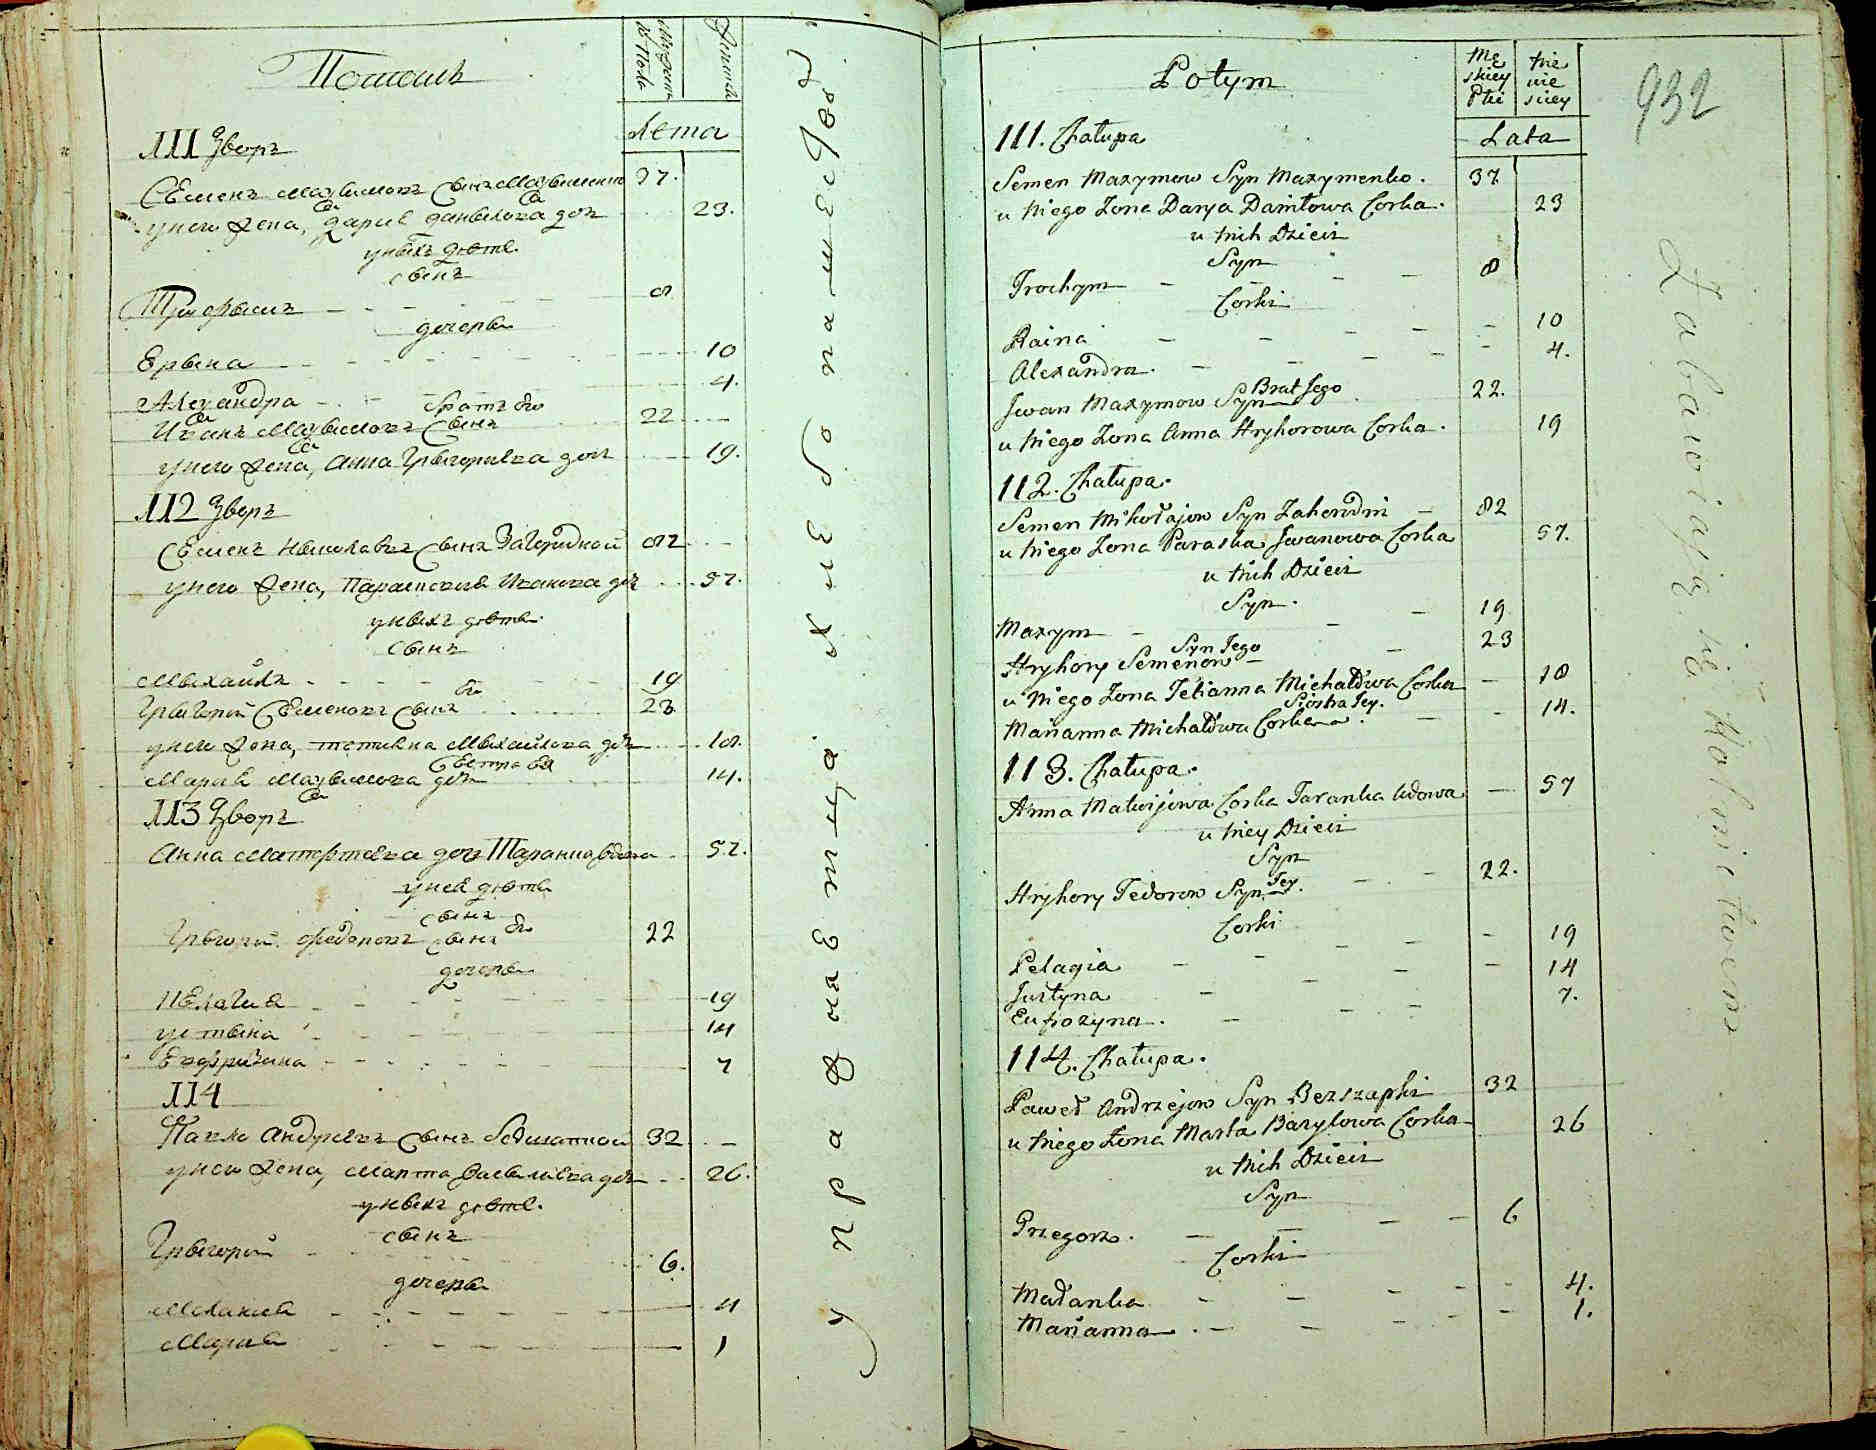 Потомъ
Мужеска Полу
Женска
Лета
111 Дворъ
Семенъ Маѯимовъ Сынъ Маѯименко 37.
у него Жена, Дария Данилова дочь 23.
у нихъ дѣти
сынъ
Трофимъ 8
дочери
Ирина 10
Алеѯандра 4.
Братъ его
Иванъ Маѯимовъ Сынъ 22
у него Жена, Анна Григориева дочь 19.
112 Дворъ
Семенъ Николаевъ Сынъ Загородной 82
у него Жена, Параскевия Иванова дочь 57.
у нихъ дѣти
сынъ
Михайлъ 19
Григорий Семеновъ Сынъ его 23
у него Жена, Татияна Михайлова дочь 18.
Сестра ея
Мария дочь 14.
113 Дворъ
Анна дочь Таранка вдова 57.
у нея дѣти
сынъ
Григорий Федоровъ Сынъ 22
дочери
Пелагия 19
Устина 14
Евфросина 7
114
Павло Андреевъ Сынъ 32
у него Жена, Марта Василиева дочь 26.
у нихъ дѣти
сынъ
Григорий 6.
дочери
Мелания 4
Мария 1
упражняется хлебопашествомъ
Potym
Męskiey Płci
Żeńskiey
Lata
932
111. Chałupa
Semen Maxymow Syn Maxymenko. 37
u Niego Żona Darya Daniłowa Corka. 23
u Nich Dzieci
Syn
Trochym 8
Corki
Raina 10
Alexandra. 4.
Brat Jego
Iwan Maxymow Syn 22.
u Niego Żona Anna Hryhorowa Corka. 19
112. Chałupa.
Semen Mikołajow Syn Zahorodni 82
u Niego Żona Paraska Iwanowa Corka 57.
u Nich Dzieci
Syn.
Maxym 19
Syn Jego
Hryhory Semenow 23
u Niego Żona Tetianna Michałowa Corka 18
Siostra Jey.
Marianna Michałowa Corka 14.
113. Chałupa.
Anna Matwijowa Corka Taranka Wdowa 57
u Niey Dzieci
Syn
Hryhory Fedorow Syn Jey. 22.
Corki
Pelagia 19
Justyna 14
Eufrozyna. 7.
114. Chałupa.
Paweł Andrzejow Syn Bezszapki 32
u Niego Żona Marta Bazylowa Corka 26
u Nich Dzieci
Syn
Grzegorz. 6
Corki
Małanka 4.
Marianna. 1.
Zabawiają się Rolnictwem